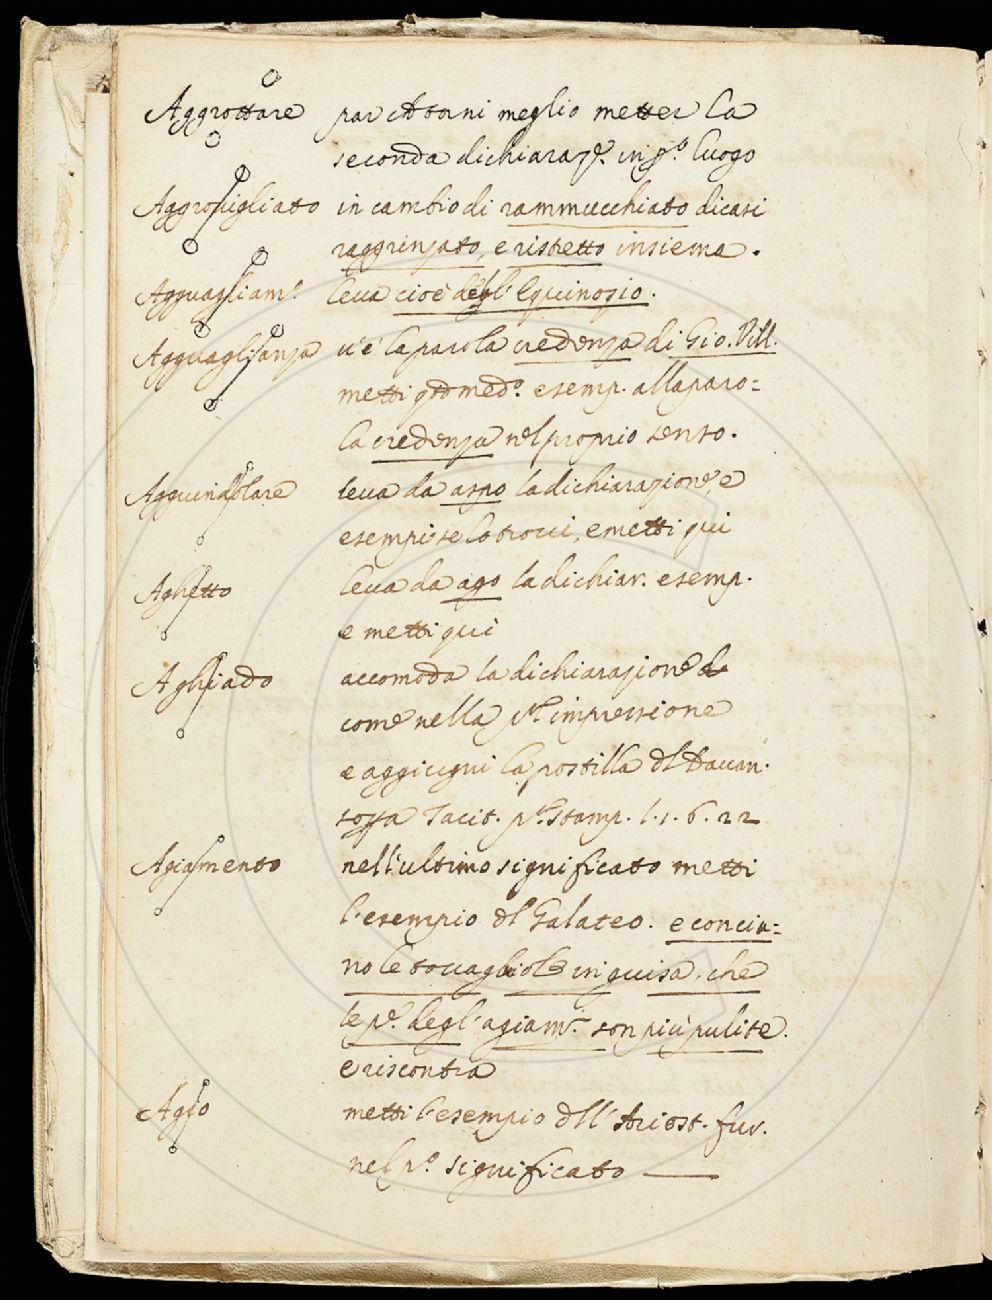 Aggrottare par ch torni meglio metter la
seconda dichiaraz.e in q.o luogo
Aggrovigliato in cambio di rammucchiato dicasi
raggrinzato, e ristretto insieme.
Agguagliam.o leva cioè degl'Equinozio.
Agguaglianza v'è la parola credenza di Gio. Vill.
metti qto med.o esemp. alla paro=
la credenza nel proprio senso.
Agguindolare leva da aspo la dichiarazione, e
esempi se lo trovi, e metti qui
Aghetto leva da ago la dichiar. esemp.
e metti qui
Aghiado accomoda la dichiarazione
come nella p.a impressione
e aggiugni la postilla dl Davan.
sopra Tacit. p.a stamp. l. 1. 6. 22
Agiamento nell'ultimo significato metti
l'esempio dl Galateo. e concia=
no le tovagliole in guisa, che
le p.e degl'agiam.ti son più pulite.
e riscontra
Agio metti l'esempio dll'Ariost. fur.
nel p.o significato